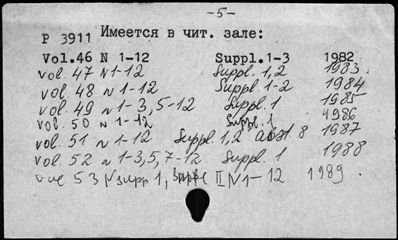 -5-
P 3911 Имеется в чит. зале:
Vol.46 N 1-12 Suppl.1-3 1982
vol. 47 N 1-12 Suppl. 1,2 1983
vol. 48 N 1-12 Suppl. 1-2 1984
vol. 49 N 1-3, 5-12 Suppl. 1 1985
vol. 50 N 1-12 Suppl. 1 1986
vol. 51 N 1-12 Suppl. 1,2 8 1987
vol. 52 N 1-3,5,7-12 Suppl. 1 1988
53 N supp 1, II N 1-12 1989.